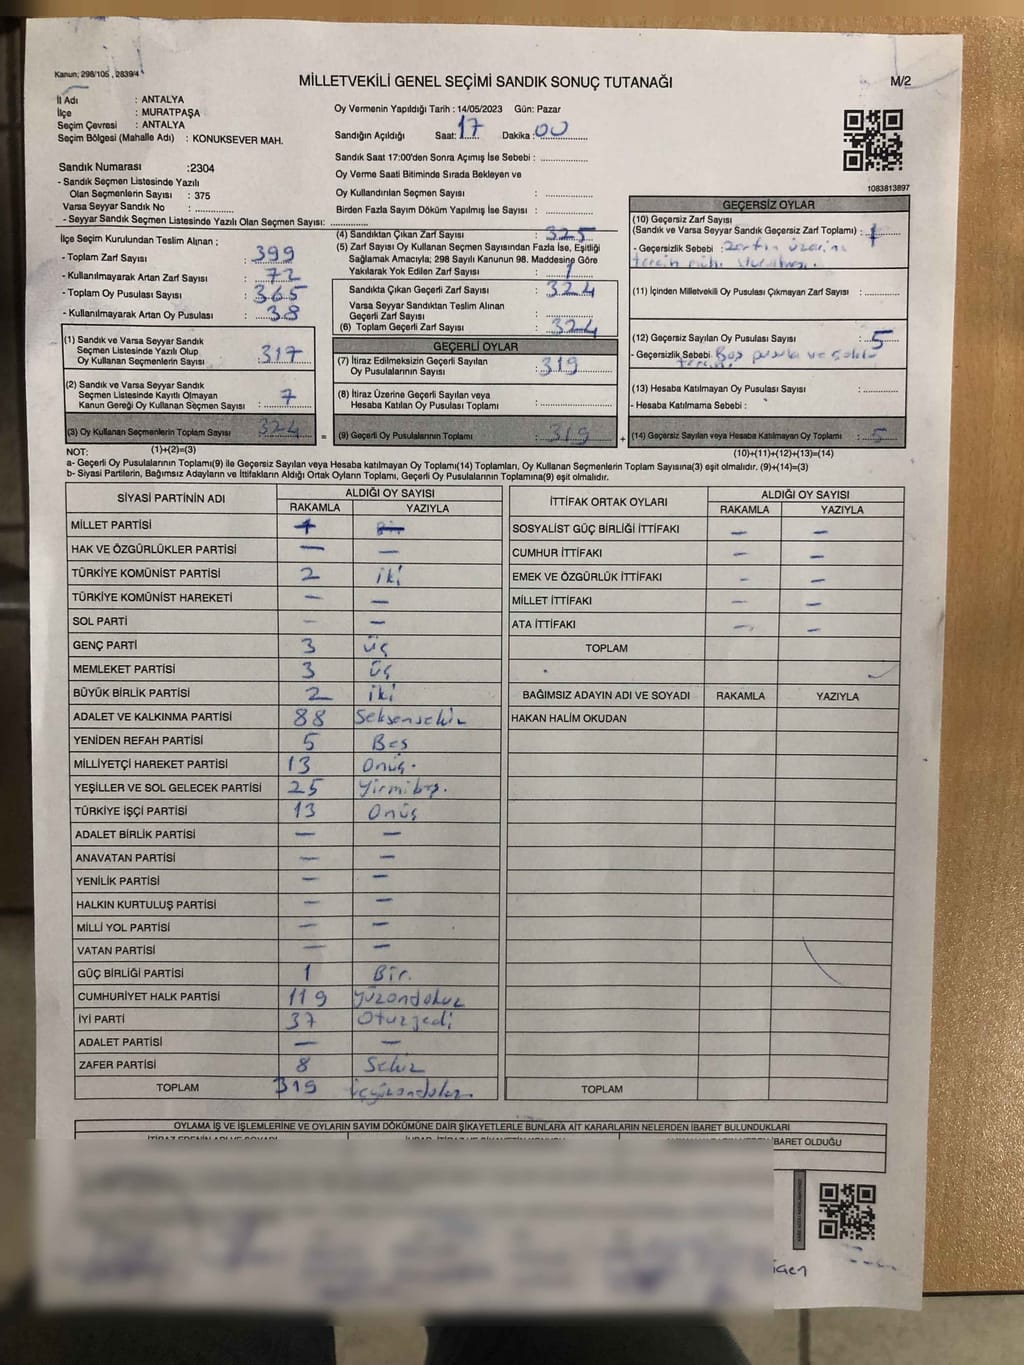 Kanun: 298/105 , 2839/4
MİLLETVEKİLİ GENEL SEÇİMİ SANDIK SONUÇ TUTANAĞI
M/2
İl Adı : ANTALYA
İlçe : MURATPAŞA
Seçim Çevresi : ANTALYA
Seçim Bölgesi (Mahalle Adı) : KONUKSEVER MAH.
Sandık Numarası :2304
- Sandık Seçmen Listesinde Yazılı
Olan Seçmenlerin Sayısı : 375
Varsa Seyyar Sandık No :
- Seyyar Sandık Seçmen Listesinde Yazılı Olan Seçmen Sayısı:
Oy Vermenin Yapıldığı Tarih : 14/05/2023 Gün: Pazar
Sandığın Açıldığı Saat: 17 Dakika : 00
Sandık Saat 17:00'den Sonra Açımış İse Sebebi :
Oy Verme Saati Bitiminde Sırada Bekleyen ve
Oy Kullandırılan Seçmen Sayısı :
Birden Fazla Sayım Döküm Yapılmış İse Sayısı :
1083813897
İlçe Seçim Kurulundan Teslim Alınan ;
- Toplam Zarf Sayısı : 399
- Kullanılmayarak Artan Zarf Sayısı : 72
- Toplam Oy Pusulası Sayısı : 365
- Kullanılmayarak Artan Oy Pusulası : 38
(1) Sandık ve Varsa Seyyar Sandık
Seçmen Listesinde Yazılı Olup
Oy Kullanan Seçmenlerin Sayısı : 317
(2) Sandık ve Varsa Seyyar Sandık
Seçmen Listesinde Kayıtlı Olmayan
Kanun Gereği Oy Kullanan Seçmen Sayısı : 7
(3) Oy Kullanan Seçmenlerin Toplam Sayısı : 324
(1)+(2)=(3)
(4) Sandıktan Çıkan Zarf Sayısı : 325
(5) Zarf Sayısı Oy Kullanan Seçmen Sayısından Fazla İse, Eşitliği
Sağlamak Amacıyla; 298 Sayılı Kanunun 98. Maddesine Göre
Yakılarak Yok Edilen Zarf Sayısı : 1
Sandıkta Çıkan Geçerli Zarf Sayısı : 324
Varsa Seyyar Sandıktan Teslim Alınan
Geçerli Zarf Sayısı :
(6) Toplam Geçerli Zarf Sayısı : 324
GEÇERLİ OYLAR
(7) İtiraz Edilmeksizin Geçerli Sayılan
Oy Pusulalarının Sayısı : 319
(8) İtiraz Üzerine Geçerli Sayılan veya
Hesaba Katılan Oy Pusulası Toplamı :
= (9) Geçerli Oy Pusulalarının Toplamı : 319 +
GEÇERSİZ OYLAR
(10) Geçersiz Zarf Sayısı
(Sandık ve Varsa Seyyar Sandık Geçersiz Zarf Toplamı) : 1
- Geçersizlik Sebebi : Zarfın üzerine
tercih mührü vurulması.
(11) İçinden Milletvekili Oy Pusulası Çıkmayan Zarf Sayısı :
(12) Geçersiz Sayılan Oy Pusulası Sayısı : 5
- Geçersizlik Sebebi : Boş pusula ve
(13) Hesaba Katılmayan Oy Pusulası Sayısı :
- Hesaba Katılmama Sebebi :
(14) Geçersiz Sayılan veya Hesaba Katılmayan Oy Toplamı : 5
(10)+(11)+(12)+(13)=(14)
NOT:
a- Geçerli Oy Pusulalarının Toplamı(9) ile Geçersiz Sayılan veya Hesaba katılmayan Oy Toplamı(14) Toplamları, Oy Kullanan Seçmenlerin Toplam Sayısına(3) eşit olmalıdır. (9)+(14)=(3)
b- Siyasi Partilerin, Bağımsız Adayların ve İttifakların Aldığı Ortak Oyların Toplamı, Geçerli Oy Pusulalarının Toplamına(9) eşit olmalıdır.
SİYASİ PARTİNİN ADI ALDIĞI OY SAYISI
RAKAMLA YAZIYLA
MİLLET PARTİSİ 1 Bir
HAK VE ÖZGÜRLÜKLER PARTİSİ — —
TÜRKİYE KOMÜNİST PARTİSİ 2 iki
TÜRKİYE KOMÜNİST HAREKETİ — —
SOL PARTİ — —
GENÇ PARTİ 3 üç
MEMLEKET PARTİSİ 3 üç
BÜYÜK BİRLİK PARTİSİ 2 iki
ADALET VE KALKINMA PARTİSİ 88 Seksensekiz
YENİDEN REFAH PARTİSİ 5 Beş
MİLLİYETÇİ HAREKET PARTİSİ 13 Onüç.
YEŞİLLER VE SOL GELECEK PARTİSİ 25 Yirmibeş.
TÜRKİYE İŞÇİ PARTİSİ 13 Onüç
ADALET BİRLİK PARTİSİ — —
ANAVATAN PARTİSİ — —
YENİLİK PARTİSİ — —
HALKIN KURTULUŞ PARTİSİ — —
MİLLİ YOL PARTİSİ — —
VATAN PARTİSİ — —
GÜÇ BİRLİĞİ PARTİSİ 1 Bir.
CUMHURİYET HALK PARTİSİ 119 yüzondokuz
İYİ PARTİ 37 Otuzyedi
ADALET PARTİSİ — —
ZAFER PARTİSİ 8 Sekiz
TOPLAM 319 üçyüzondokuz.
İTTİFAK ORTAK OYLARI ALDIĞI OY SAYISI
RAKAMLA YAZIYLA
SOSYALİST GÜÇ BİRLİĞİ İTTİFAKI — —
CUMHUR İTTİFAKI — —
EMEK VE ÖZGÜRLÜK İTTİFAKI — —
MİLLET İTTİFAKI — —
ATA İTTİFAKI — —
TOPLAM
BAĞIMSIZ ADAYIN ADI VE SOYADI RAKAMLA YAZIYLA
HAKAN HALİM OKUDAN
TOPLAM
OYLAMA İŞ VE İŞLEMLERİNE VE OYLARIN SAYIM DÖKÜMÜNE DAİR ŞİKAYETLERLE BUNLARA AİT KARARLARIN NELERDEN İBARET BULUNDUKLARI
İBARET OLDUĞU